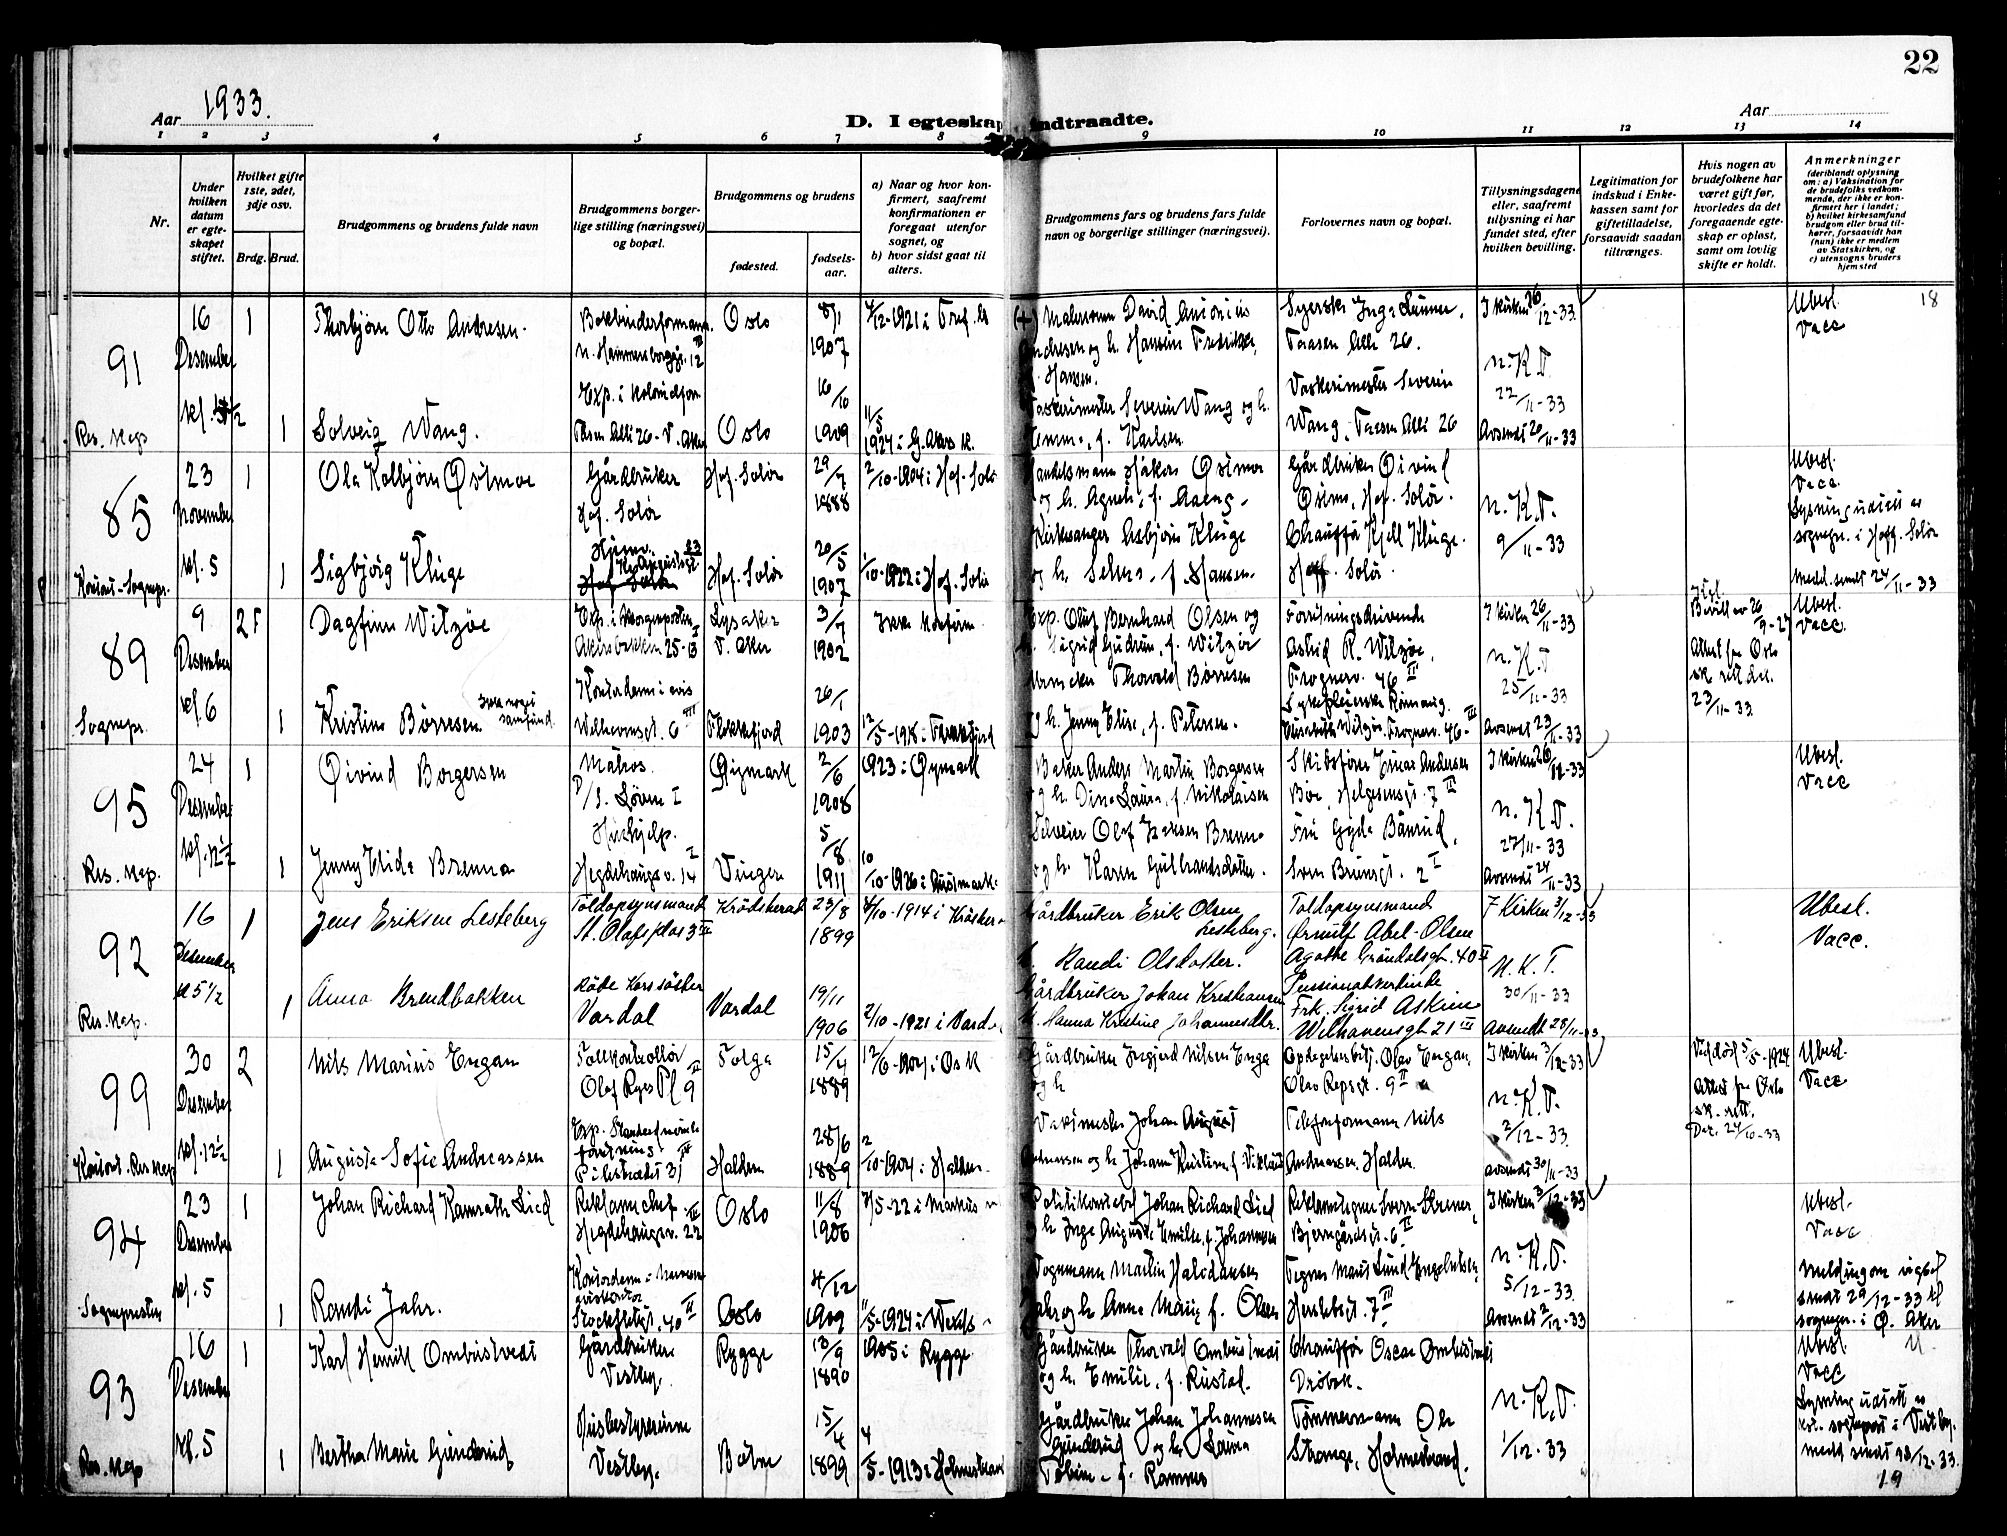 22
Aar 1933.
D. I egteskap indtraadte.
Aar
1 2 3 4 5 6 7 8 9 10 11 12 13 14
Nr.
Under hvilken datum er egteskapet stiftet.
Hvilket gifte 1ste, 2det, 3dje osv.
Brdg. Brud.
Brudgommens og brudens fulde navn
Brudgommens borgerlige stilling (næringsvei) og bopæl.
Brudgommens og brudens
fødested.
fødselsaar.
a) Naar og hvor konfirmert, saafremt konfirmationen er foregaat utenfor sognet, og
b) hvor sidst gaat til alters.
Brudgommens fars og brudens fars fulde navn og borgerlige stillinger (næringsvei).
Forlovernes navn og bopæl.
Tillysningsdagene eller, saafremt tillysning ei har fundet sted, efter hvilken bevilling.
Legitimation for indskud i Enkekassen samt for giftetilladelse, forsaavidt saadan tiltrænges.
Hvis nogen av brudefolkene har været gift før, hvorledes da det foregaaende egteskap er opløst, samt om lovlig skifte er holdt.
Anmerkninger
(deriblandt oplysning om: a) Vaksination for de brudefolks vedkommende, der ikke er konfirmert her i landet;
b) hvilket kirkesamfund brudgom eller brud tilhører, forsaavidt han (hun) ikke er medlem av Statskirken, og
c) utensogns bruders hjemsted
91
16 Desember
Res. Kap
1
Thorbjørn Otto Andresen.
Oslo
8/1 1907
4/12-1921 i
Malermann David Antonius
Andresen og h. Hansine Fredrikke,
f. Hansen.
Taasen Alli 26.
I kirken 26/12-33
N.K.T.
22/11-33
Avsendt 20/11-33
Ubesl.
Vacc
18
1
Solveig Wang.
Taasen Alli 26 - V. Aker
Oslo
16/10 1909
11/5 1924 i G. Akers k.
Vaskerimester Severin Wang og h.
f. Karlsen
Vaskerimester Severin
Wang, Taasen Alli 26
85
23 November
kl. 5
Kontoret - Sognepr.
1
Ola Kolbjørn Østmoe
Gårdbruker
Hof. Solør
Hof. Solør
29/7 1888
2/10-1904 i Hof. Solør
Handelsmann Håkon Østmoe
og h. Agnete, f. Aaeng.
Gårdbruker Øivind
Østmo, Hof. Solør.
N.K.T.
9/11-33
Ubesl.
Vacc.
Lysning utstedt av
sognepr. i Hoff. Solør
Medd. sendt 24/11-33
1
Sigbjørg Kluge
Hjemv.
Hof. Solør
Hof. Solør
20/5 1907
1/10-1922 i Hof. Solør
Kirkesanger Asbjørn Kluge
og h. Selma, f. Hansen.
Chauffør Kjell Kluge.
Hoff. Solør.
89
9 Desember
kl. 6
Sognepr.
2 F
Dagfinn Witzøe
Exp. i Morgenposten
Akersbakken 25-13
Lysaker
V. Aker
3/7 1902
Ikke konfirm.
Exp. Oluf Bernhard Olsen og
h. Sigrid Gudrun, f. Witzøe
Forretningsdrivende
Astrid R. Witzøe,
Frognerv. 46 III
I kirken 26/11-33
N.K.T
25/11-33
Avsendt 23/11-33
Bevill. av 26/9-27
Attest fra Oslo
sk. rett dat.
23/11-33
Ubesl.
Vacc.
1
Kristine Børresen
Ikke noget samfund
Kontordame i avis
Welhavensgt. 6 III
Flekkefjord
26/1 1903
12/5-1918 i Flekkefjord
Urmaker Thorvald Børresen
og h. Jenny Elise, f. Petersen.
95
24 Desember
kl. 12 1/2
Res. Kap.
1
Øivind Borgersen
Matros.
D/S. Løven I
Øymark
2/6 1908
1923 i Øymark
Baker Anders Martin Borgersen
og h. Dina Laura, f. Nikolaisen
Skibsfører Einar Andersen
Bøe, Helgesensgt. 7 II
I kirken 26/12-33
N.K.T.
27/11-33
Avsendt 24/11-33
Ubesl.
Vacc
1
Jenny Elida Brenna
Hushjelp.
Hegdehaugsv. 14 I
Vinger
5/8 1911
10/10-1926 i Austmark.
Selveier Olaf Isaksen Brenna
og h. Karen Gulbrandsdatter.
Fru Gyda Bånrud,
Sven Brunsgt. 2 I
92
16 Desember
kl 5 1/2
Res. Kap.
1
Jens Eriksen Lesteberg
Toldopsynsmand
St. Olafs plas 3 III
Krødsherad
23/8 1899
4/10-1914 i Krødsher
Gårdbruker Erik Olsen
Lesteberg.
h. Randi Olsdatter.
Toldopsynsmand
Ørnulf Abel-Olsen
Agathe Grøndalsgt. 40 II
I Kirken 3/12-33
N.K.T.
30/11-33
Avsendt 28/11-33
Ubesl.
Vacc.
1
Anna Brendbakken
Røde Kors søster
Vardal
Vardal
19/11 1906
2/10-1921 i Vardal
Gårdbruker Johan Kristiansen
h. Hanna Kristine Johannesdtr.
Pensionatværtinde
Frk. Sigrid Askim
Welhavensgt 21 III
99
30 Desember
kl. 12 1/2
Kontoret. Res Kap
2
Nils Marius Engan
Tollkontrollør
Olaf Ryes Pl 9 II
Tolga
15/4 1889
12/6-1904 i Os k
Gårdbruker Ingjerd Nilsen Enga
og h
Olav Engan.
Olav Ryesgt. 9 II
I kirken 3/12-33
N.K.T.
2/12-33.
Avsendt 30/11-33
Ved død 5/5-1924
Attest fra Oslo
sk. rett.
Dat. 24/10-33
Ubesl.
Vacc
1
Augusta Sofie Andreassen
Pilestredet 31 IV
Halden
28/6 1889
2/10-1904 i Halden
Johan August
Andreassen og h. Johanne Kristine f. Vikland
Telefonformann Nils
Andreassen. Halden.
94
23 Desember
kl. 5
Sognepresten
1
Johan Richard Kamrath Lied
Reklamechef
Hegdehaugsv. 22 III
Oslo
11/8 1906
7/5-22 i Markus
Politikonstabel Johan Richard Lied
h. Inga Augusta Emilie, f. Johannesen
Bjerregårdsgt. 6 II
I kirken 3/12-33
N.K.T.
5/12-33.
Avsendt 2/12-33
Ubesl.
Vacc
Melding om vigsel
sendt 29/12-33 til
sognepr. i Ø. Aker
1
Randi Jahr.
Stockfletsgt. 40 II
Oslo
4/12 1909
11/5-1924 i
Vognmann Martin Halvdansen
Jahr og h. Anna Marie f. Olsen
Tegner Marie Lund Engebretsen,
Herslebsgt. 7 III
93
16 Desember
kl. 5
Res. Kap
1
Karl Henrik Ombustvedt
Gårdbruker
Vestby.
Rygge
13/9 1890
1905 i Rygge
Gårdbruker Thorvald Ombustvedt
og h. Emilie, f. Rustad.
Chauffør Oscar Ombustvedt
Drøbak.
N.K.T.
1/12-33
Ubesl. U.
Vacc
Lysning utstedt av
i Vestby.
Medd sendt 18/12-33.
19
1
Bertha Marie Gunderud
Husbestyrerinne
Vestby.
Botne
15/4 1899
4/5-1913 i Holmestrand
Gårdbruker Johan Johannesen
Gunderud og h. Laura
f. Ramnes
Tømmermann Ole
Strange, Holmestrand.